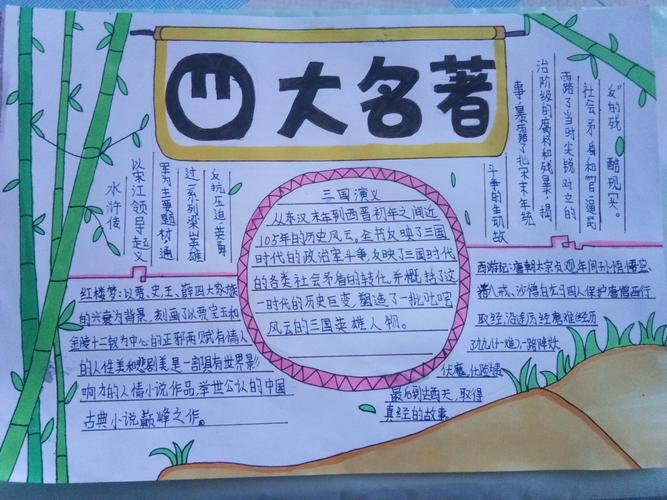 四大名著
水浒传
以宋江领导起义
军为主要题材,通
过一系列梁山英雄
反抗压迫、英勇
斗争的生动故
事,暴露了北宋末年统
治阶级的腐朽和残暴,揭
露了当时尖锐对立的
社会矛盾和官逼民
反"的残酷现实。
三国演义
从东汉末年到西晋初年之间近
105年的历史风云,全书反映了三国
时代的政治军斗争反映了三国时代
的各类社会矛盾的转化,并概括了这
一时代的历史巨变,塑造了一批叱咤
风云的三国英雄人物。
红楼梦:以贾、史、王、薛四大家族
的兴衰为背景,刻画了以贾宝玉和
金陵十二钗为中心的正邪两赋有情人
的人性美和悲剧美是一部具有世界影
响力的人情小说作品,举世公认的中国
古典小说巅峰之作。
西游记:唐朝太宗贞观年间孙悟空、
猪八戒、沙僧白龙马四人保护唐僧西行
取经,沿途历经磨难(经历
八十一难),一路降妖
伏魔,化险
最后到达西天,取得
真经的故事。